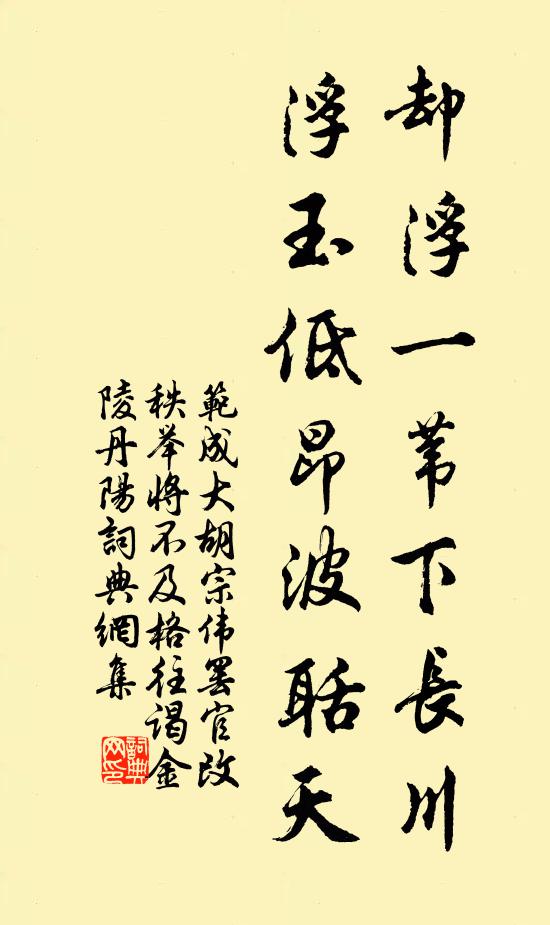 却浮一苇下長川
浮玉低昂波聒天
範成大胡宗伟罢官改
秩举将不及格往谒金
陵丹陽詞典網集
詞典
网印